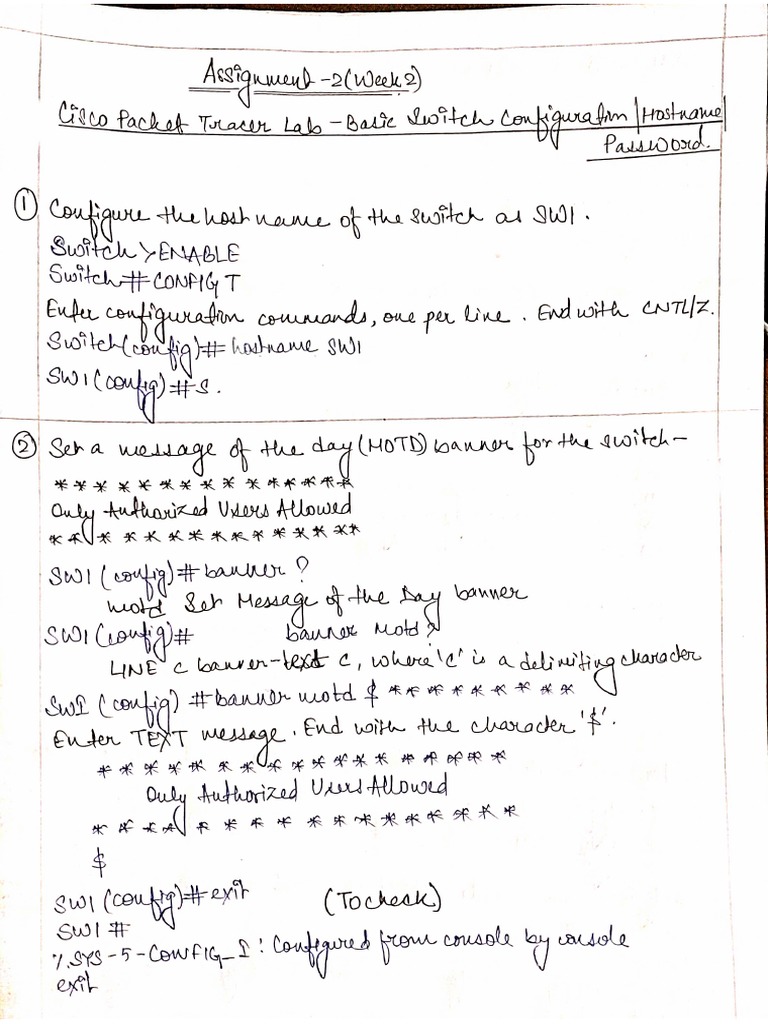 Assignment-2(Week2)
Cisco Packet Tracer Lab - Basic Switch Configuration | Hostname |
Password.
① Configure the host name of the switch as SW1.
Switch>ENABLE
Switch#CONFIG T
Enter configuration commands, one per line. End with CNTL/Z.
Switch(config)#hostname SW1
SW1(config)#s.
② Set a message of the day (MOTD) banner for the switch-
* * * * * * * * * * * * * *
Only Authorized Users Allowed
* * * * * * * * * * * * * *
SW1(config)#banner ?
motd Set Message of the Day banner
SW1(config)# banner motd ?
LINE c banner-text c, where 'c' is a delimiting character
SW1 (config) #banner motd $ * * * * * * * * *
Enter TEXT message. End with the character '$'.
* * * * * * * * * * * * * * * * *
Only Authorized Users Allowed
* * * * * * * * * * * * * * * * *
$
SW1(config)#exit (To check)
SW1#
%SYS-5-CONFIG_I: Configured from console by console
exit